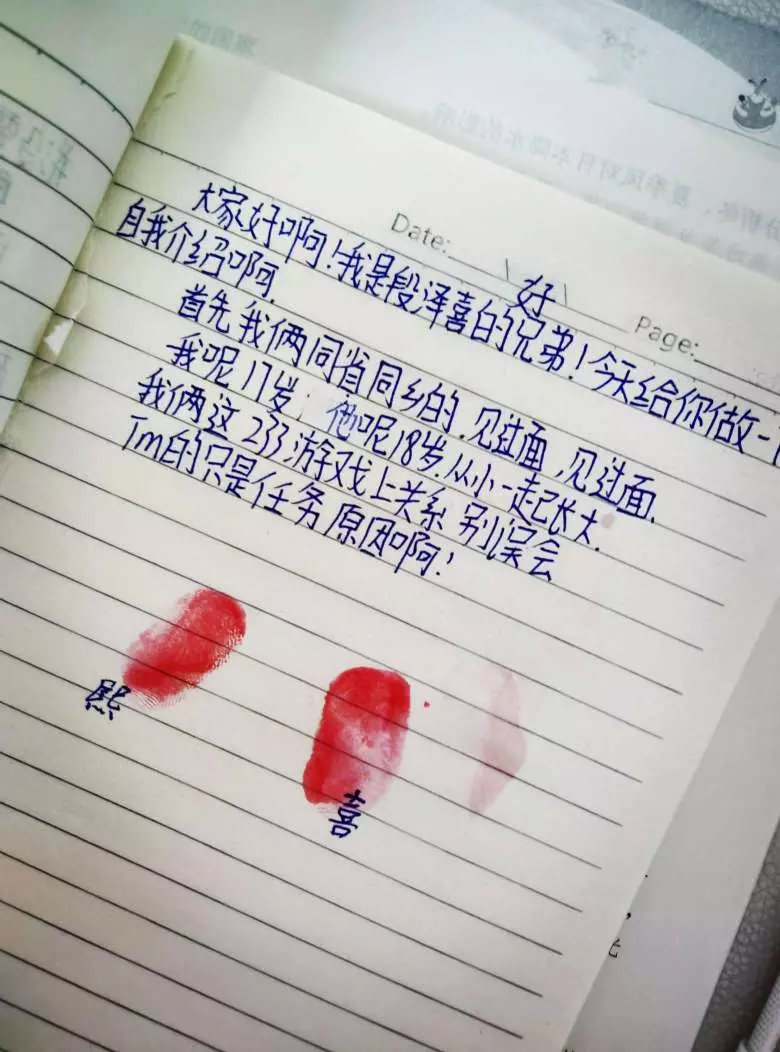 Date:
Page:
\好\
大家好啊!我是段泽喜的兄弟!今天给你做一
自我介绍啊.
首先我俩同省同乡的,见过面,见过面.
我呢17岁,他呢18岁.从小一起长大.
我俩这233游戏上关系别误会
Tm的只是任务原因啊!
熙
喜
夏季风对日本降水的影响